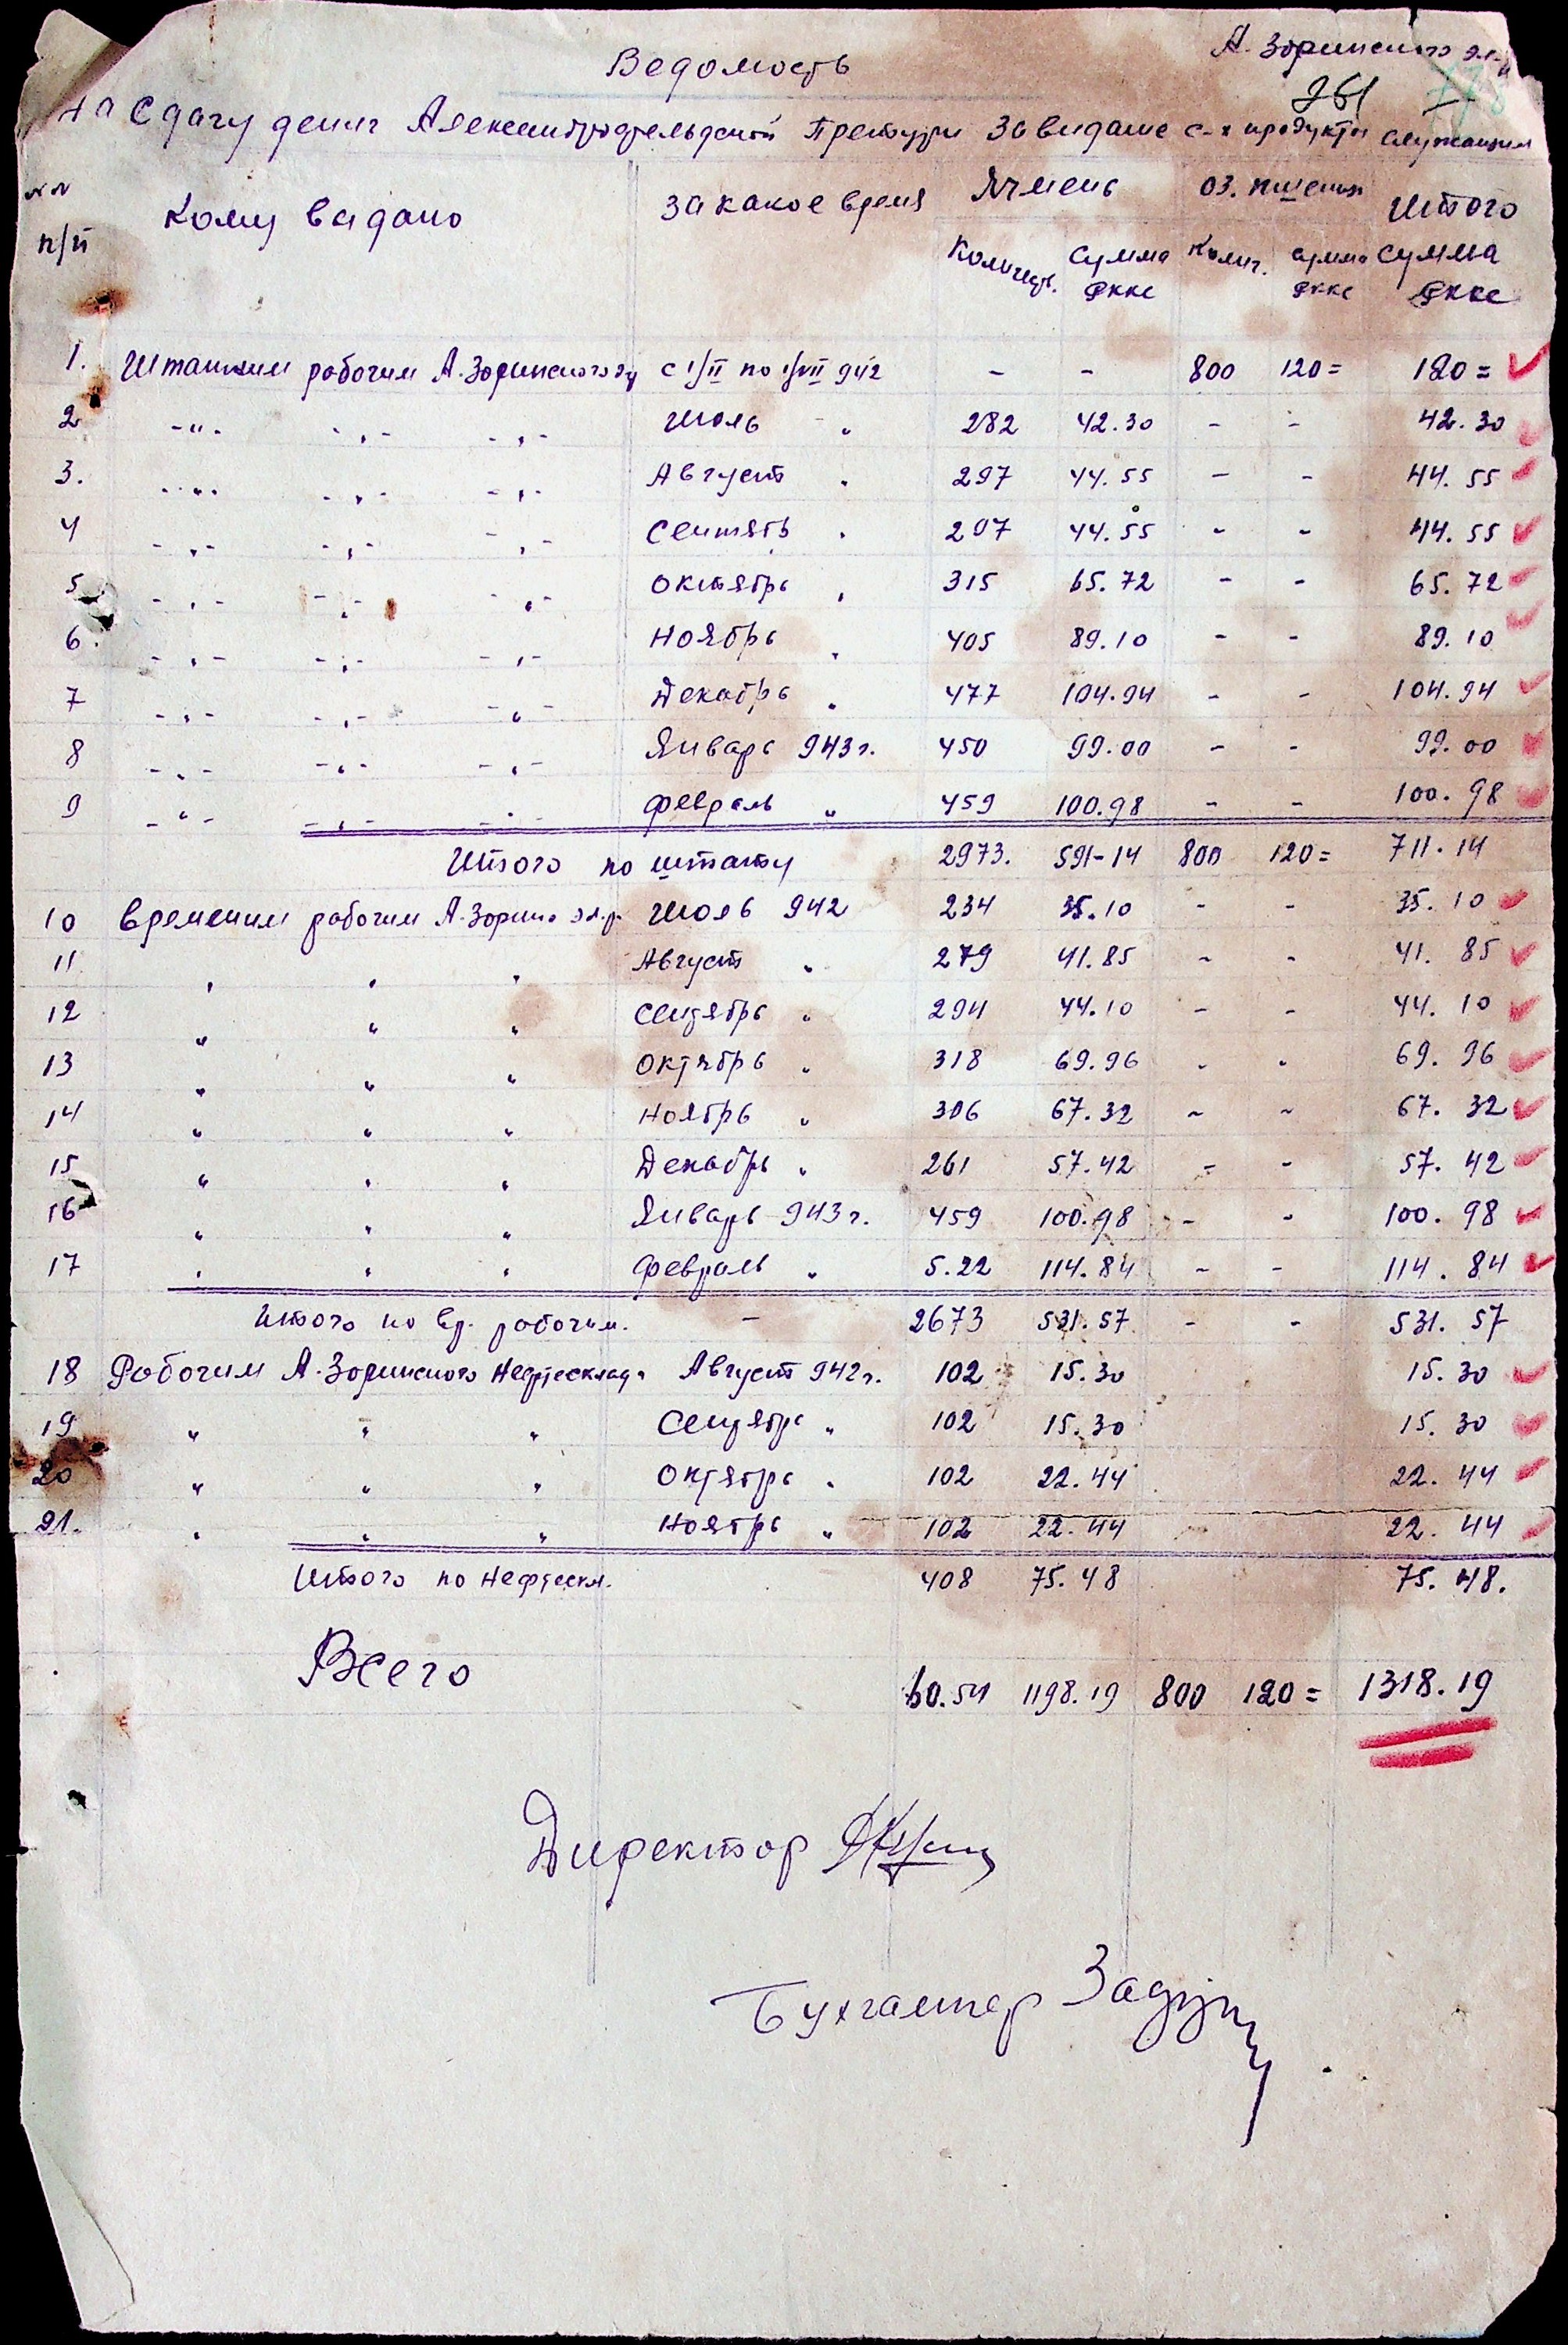 А. Зоринского эл-
Ведомость
261
на Сдачу дениг Александродгельдской Претуры За видание с-х продуктов служащим
№№ п/п Кому видано За какое время Ячмень Оз. пшениц Итого
Количеств. Сумма Ркке Колич. сумма Ркке Сумма Ркке
1. Штатним рабочим А. Зоринского эл с 1/II по 1/VII 942 - - 800 120= 120=
2 -"- -,- -,- Июль " 282 42.30 - - 42.30
3. -"- -,- -,- Август " 297 44.55 - - 44.55
4 -,- -,- -,- Сентябр " 297 44.55 - - 44.55
5 -,- -,- -,- Октябрь " 315 65.72 - - 65.72
6. -,- -,- -,- Ноябрь " 405 89.10 - - 89.10
7 -,- -,- -"- Декабрь " 477 104.94 - - 104.94
8 -,- -,- -,- Январь 943г. 450 99.00 - - 99.00
9 -"- -,- -,- Февраль " 459 100.98 - - 100.98
Итого по штату 2973. 591-14 800 120= 711.14
10 Временим рабочим А. Зорин эл. р. Июль 942 234 35.10 - - 35.10
11 " " " Август " 279 41.85 - - 41.85
12 " " " Сентябрь " 294 44.10 - - 44.10
13 " " " Октябрь " 318 69.96 - - 69.96
14 " " " Ноябрь " 306 67.32 - - 67.32
15 " " " Декабрь " 261 57.42 - - 57.42
16 " " " Январь 943г. 459 100.98 - - 100.98
17 " " " Февраль " 5.22 114.84 - - 114.84
Итого по вр. рабочим. - 2673 531.57 - - 531.57
18 Рабочим А. Зоринского Нефтесклада Август 942г. 102 15.30 15.30
19 " " " Сентябрь " 102 15.30 15.30
20 " " " Октябрь " 102 22.44 22.44
21. " " " Ноябрь " 102 22.44 22.44
Итого по Нефтескл. 408 75.48 75.48.
Всего 60.54 1198.19 800 120= 1318.19
Директор
Бухгалтер